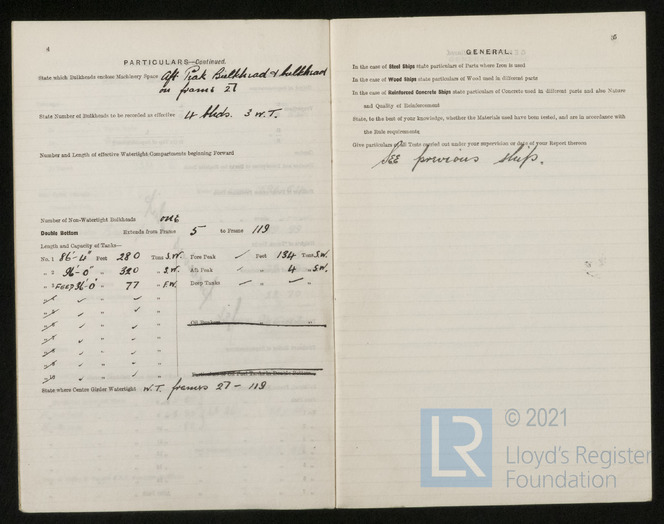 4
PARTICULARS—Continued.
State which Bulkheads enclose Machinery Space Aft Peak Bulkhead & bulkhead
on frame 27
State Number of Bulkheads to be recorded as effective 4 blkds. 3 W.T.
Number and Length of effective Watertight Compartments beginning Forward
Number of Non-Watertight Bulkheads one
Double Bottom Extends from Frame 5 to Frame 119
Length and Capacity of Tanks—
No. 1 86'-4" Feet 280 Tons S.W. Fore Peak ✓ Feet 134 Tons S.W.
" 2 96'-0" " 320 " S.W. Aft Peak ✓ " 4 " S.W.
" 3 FEED 36'-0" " 77 " F.W. Deep Tanks — " — "
" 4 ✓ " ✓ "
" 5 ✓ " ✓ "
" 6 ✓ " ✓ "
" 7 ✓ " ✓ "
" 8 ✓ " ✓ "
" 9 ✓ " ✓ "
" 10 ✓ " ✓ "
State where Centre Girder Watertight W.T. frames 27 – 119
GENERAL.
In the case of Steel Ships state particulars of Parts where Iron is used
In the case of Wood Ships state particulars of Wood used in different parts
In the case of Reinforced Concrete Ships state particulars of Concrete used in different parts and also Nature
and Quality of Reinforcement
State, to the best of your knowledge, whether the Materials used have been tested, and are in accordance with
the Rule requirements
Give particulars of all Tests carried out under your supervision or date of your Report thereon
SEE previous ship.
LR
© 2021
Lloyd's Register
Foundation